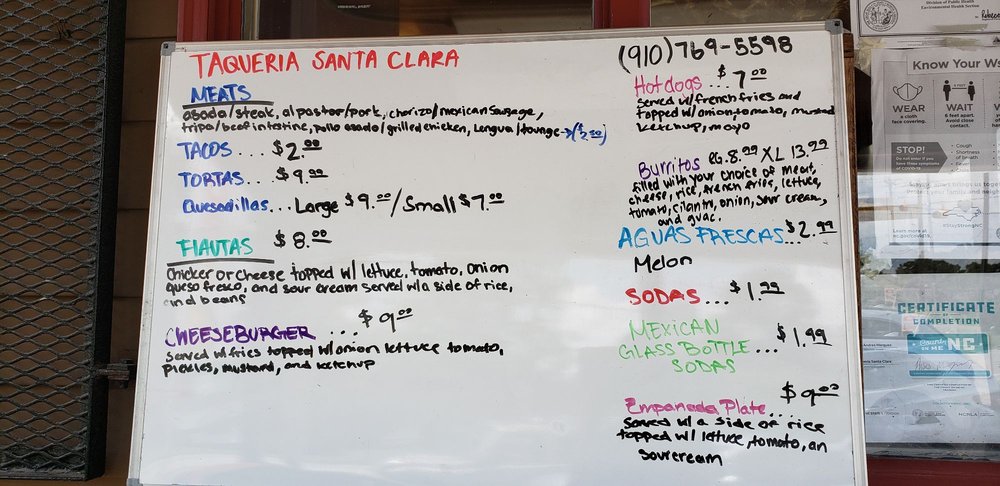 TAQUERIA SANTA CLARA
MEATS
asada/steak, al pastor/pork, chorizo/mexican sausage,
tripa/beef intestine, pollo asado/grilled chicken, Lengua/tounge→($2.50)
TACOS... $2.00
TORTAS... $9.00
Quesadillas...Large $9.00/Small $7.00
FLAUTAS $8.00
Chicken or cheese topped w/ lettuce, tomato, onion
queso fresco, and sour cream served w/a side of rice,
and beans
CHEESEBURGER ... $9.00
Served w/fries topped w/onion lettuce tomato,
pickles, mustard, and ketchup
(910)769-5598
Hotdogs... $7.00
Served w/french fries and
topped w/onion, tomato, mustard
ketchup, mayo
Burritos RG.8.99 XL 13.99
filled with your choice of meat,
cheese, rice, french fries, lettuce,
tomato, cilantro, onion, sour cream,
and guac.
AGUAS FRESCAS...$2.99
Melon
SODAS...$1.99
MEXICAN
GLASS BOTTLE ... $1.99
SODAS
Empanada Plate.... $9.00
Served w/a side of rice
topped w/ lettuce, tomato, an
sour cream
Division of Public Health
Environmental Health Section
Know Your Ws
WEAR
a cloth
face covering.
WAIT
6 feet apart.
Avoid close
contact.
STOP!
Cough
Shortness
of Breath
Fever
#StayStrongNC
Learn more at
CERTIFICATE
OF
COMPLETION
Count
on me NC